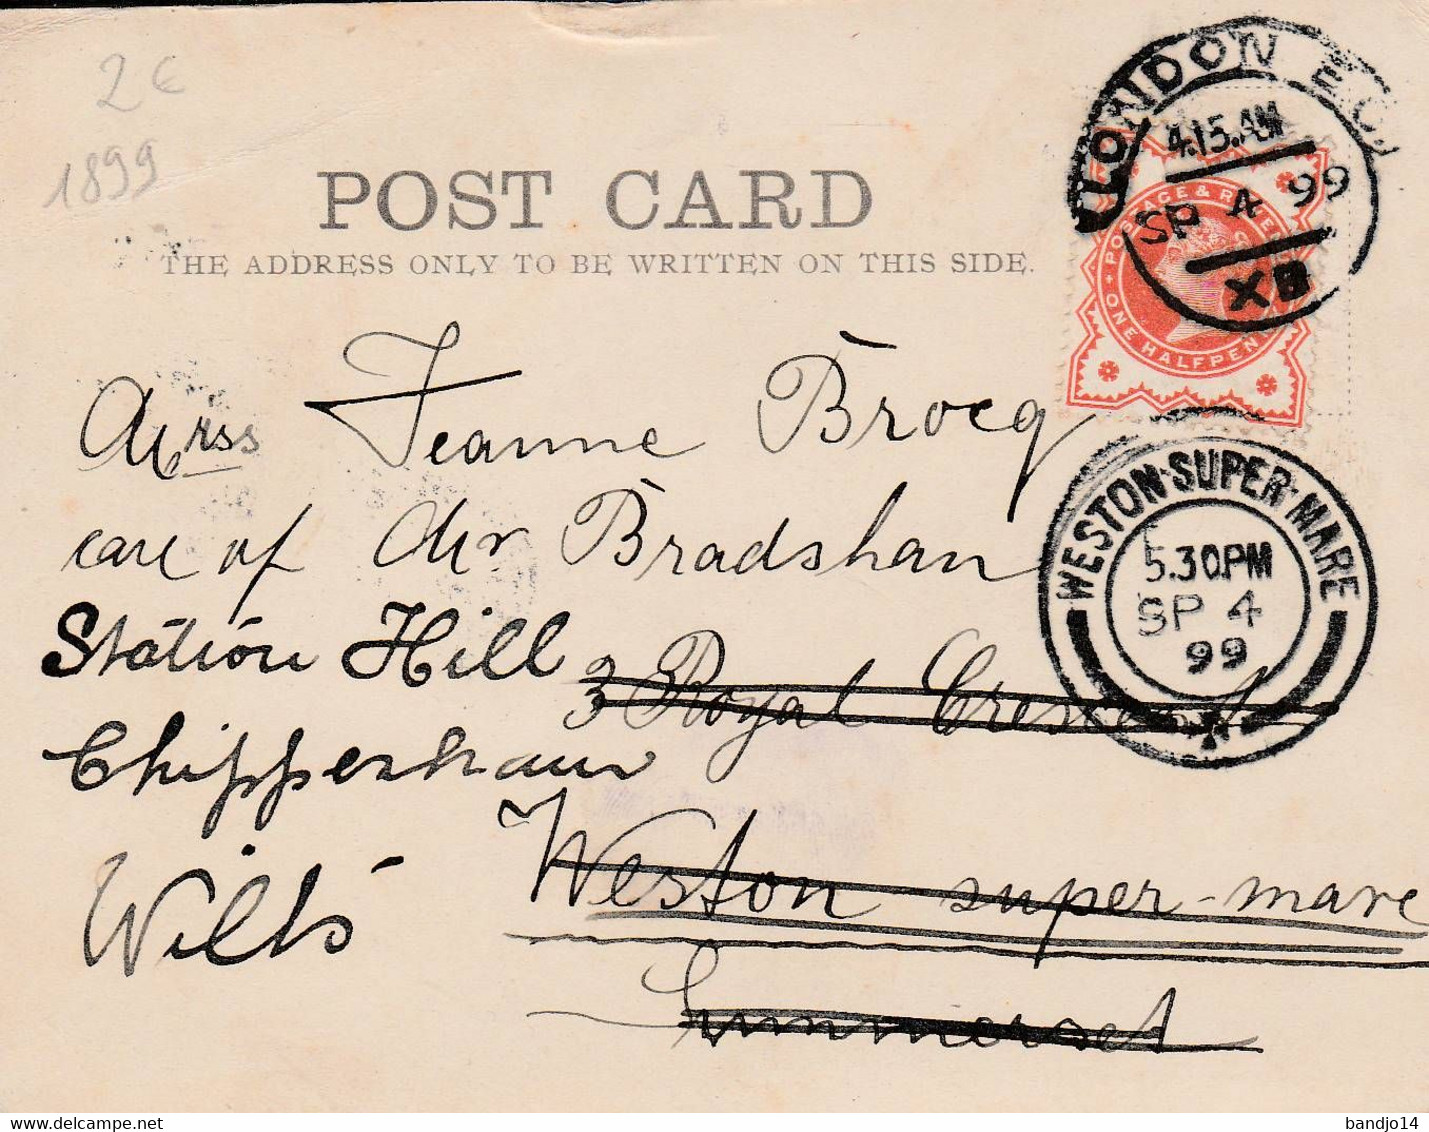 2€
1899
POST CARD
THE ADDRESS ONLY TO BE WRITTEN ON THIS SIDE.
LONDON E.C.
4.15.AM
SP 4 99
XB
POSTAGE & REVENUE
ONE HALFPENNY
Jeanne Brocq
care of Mr Bradshaw
Station Hill
3 Royal Crescent
Chippenham
Weston super-mare
Wilts
Summerset
WESTON-SUPER-MARE
5.30PM
SP 4
99
www.delcampe.net
bandjo14